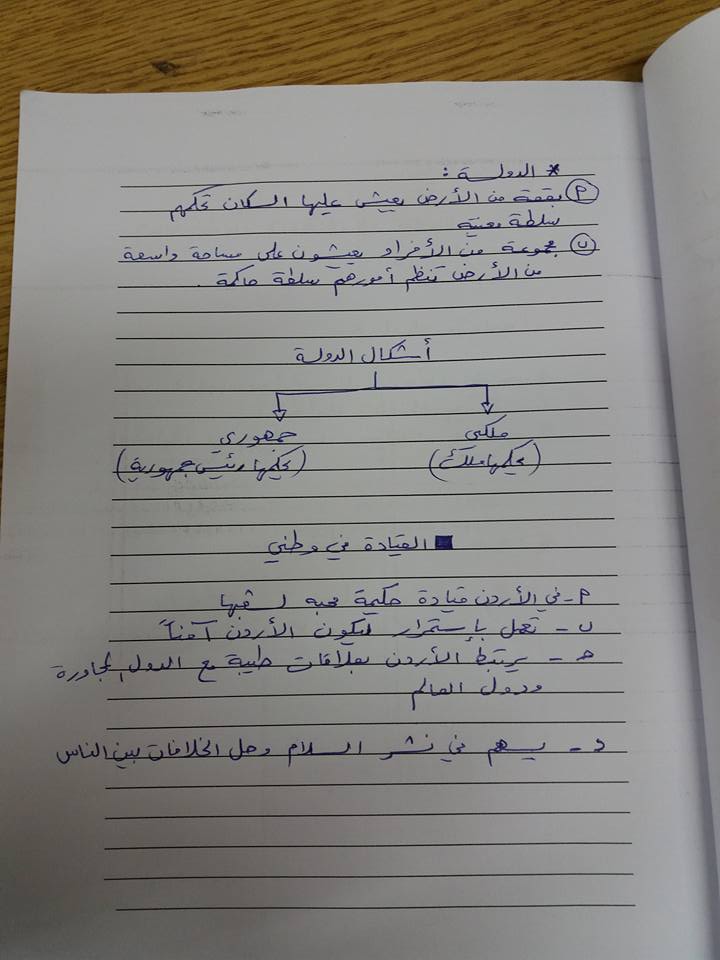 * الدولة :
أ بقعة من الأرض يعيش عليها السكان تحكمهم
سلطة معينة
ب مجموعة من الأفراد يعيشون على مساحة واسعة
من الأرض تنظم أمورهم سلطة حاكمة .
أشكال الدولة
ملكي جمهوري
(يحكمها ملك) (يحكمها رئيس جمهورية)
القيادة في وطني
أ- في الأردن قيادة حكيمة محبه لشعبها
ب - تعمل بإستمرار ليكون الأردن آمناً
حـ - يرتبط الأردن بعلاقات طيبة مع الدول المجاورة
ودول العالم
د - يسهم في نشر السلام وحل الخلافات بين الناس